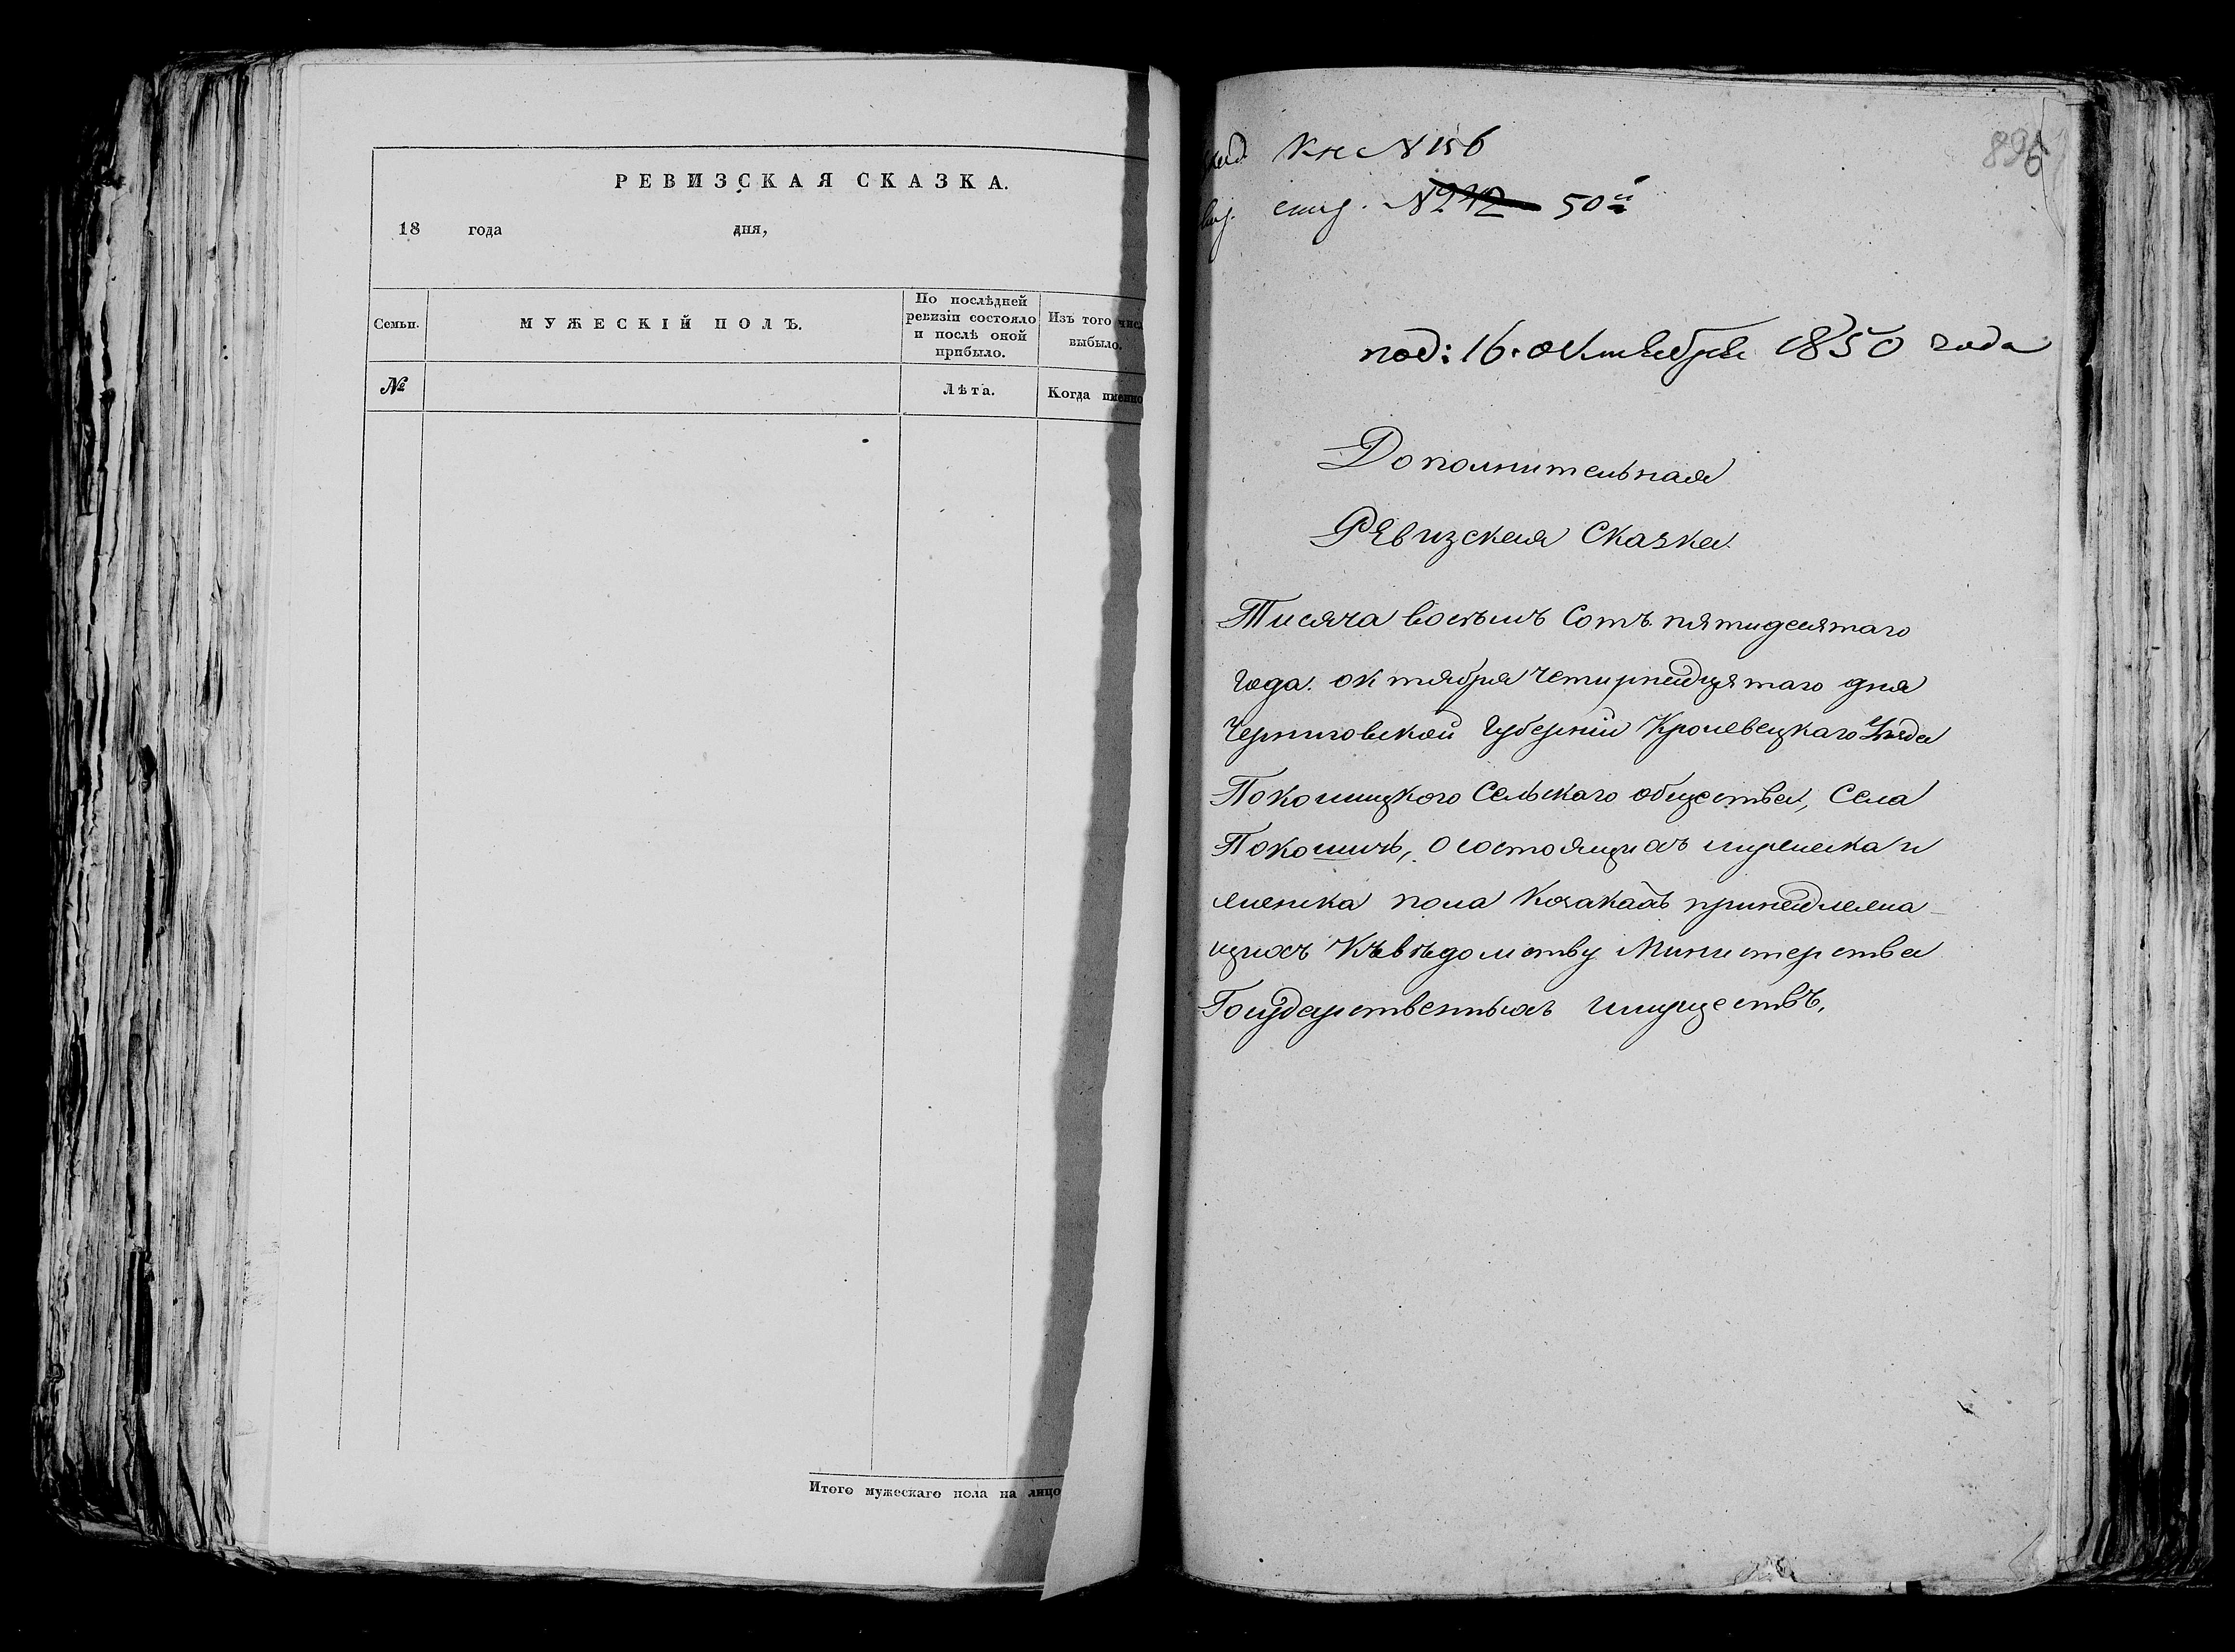 РЕВИЗСКАЯ СКАЗКА.
18 года дня,
Семьи.
МУЖЕСКІЙ ПОЛЪ.
По послѣдней
ревизіи состояло
и послѣ оной
прибыло.
Изъ того
выбыло.
№
Лѣта.
Когда именно
Итого мужескаго пола на лицо
Кн № 156
№ 212 50й
под: 16. октября 1850 года
Дополнительная
Ревизская Сказка
Тисяча восемь Сотъ пятидесятаго
года. октября четирнадцятаго дня
Черниговской Губерніи Кролевецкаго Уезда
Покошицкого Сельскаго общества, Села
Покошичь, о состоящихъ мужеска и
женска пола Козакахъ принадлежа-
щихъ Къ вѣдомству Министерства
Государственныхъ имуществъ.